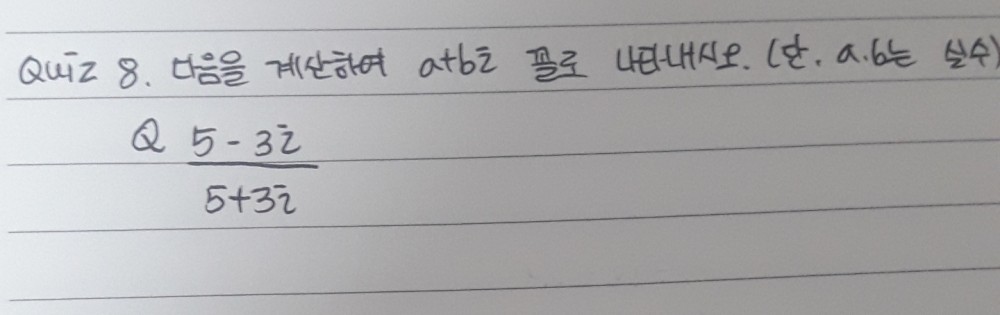 Quiz 8. 다음을 계산하여 a+bi 꼴로 나타내시오. (단. a.b는 실수)
Q 5-3i
5+3i